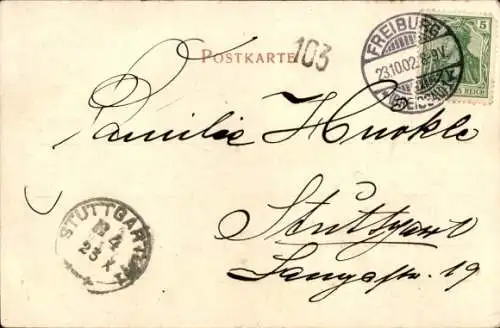 POSTKARTE
103
FREIBURG
23.10.02. 8-9V.
(BREISGAU)
5
REICH
Familie Huokle
Stuttgart
Langestr. 19
STUTTGART
23 X